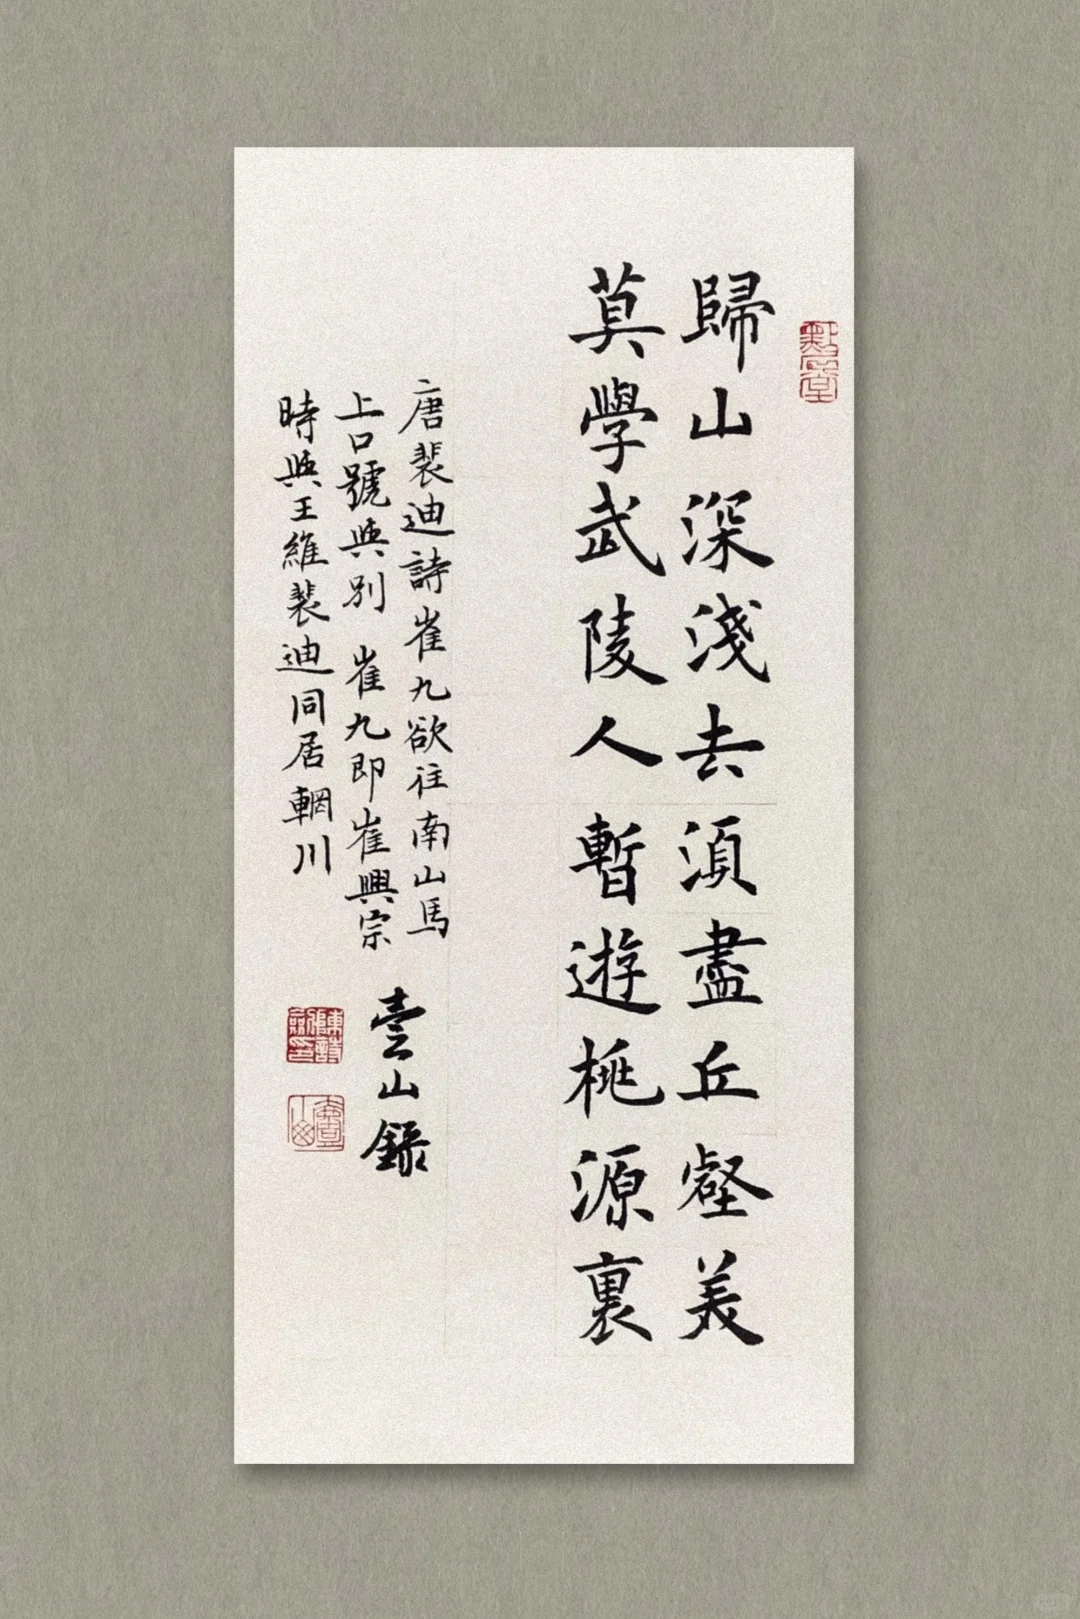 歸山深淺去須盡丘壑美
莫學武陵人暫遊桃源裏
唐裴迪詩崔九欲往南山馬
上口號與別 崔九即崔興宗
時與王維裴迪同居輞川
壹山錄